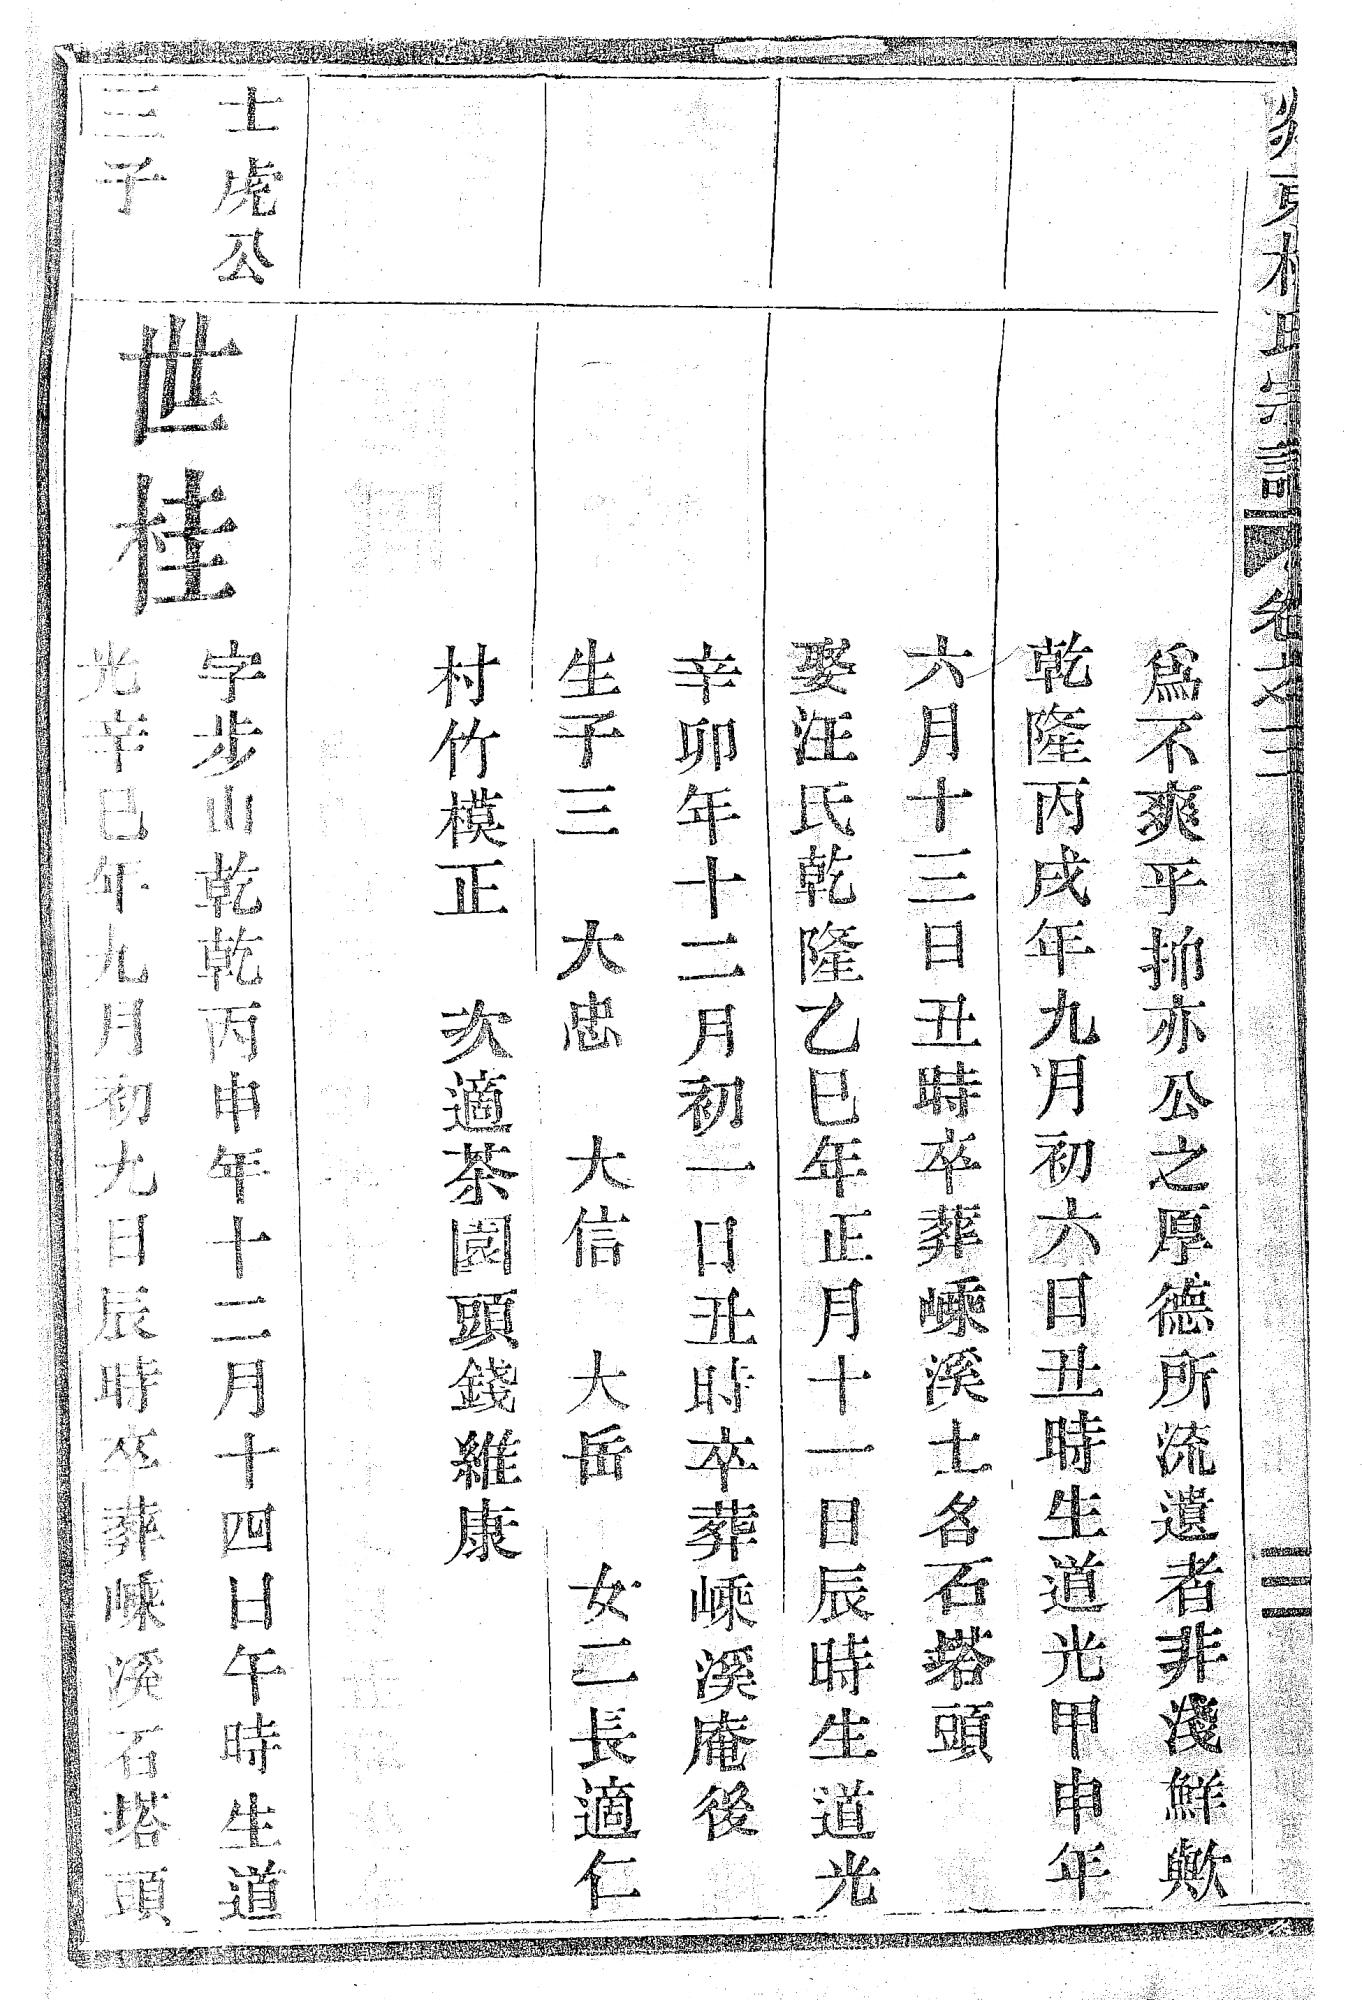 宗譜
卷之二
三
爲不爽乎抑亦公之厚德所流遺者非淺鮮歟
乾隆丙戌年九月初六日丑時生道光甲申年
六月十三日丑時卒葬嵊溪士名石塔頭
娶汪氏乾隆乙巳年正月十一日辰時生道光
辛卯年十二月初一日丑時卒葬嵊溪庵後
生子三 大忠 大信 大岳 女二長適仁
村竹模正 次適茶園頭錢維康
士虎公
三子
世桂
字步山乾乾丙申年十二月十四日午時生道
光辛巳年九月初九日辰時卒葬嵊溪石塔頭